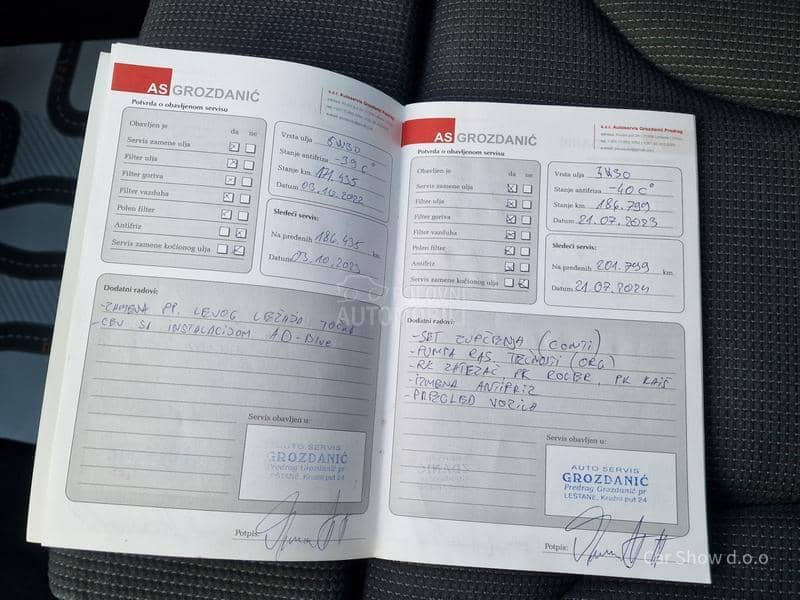 AS GROZDANIĆ
s.z.r. Autoservis Grozdanić Predrag
Potvrda o obavljenom servisu
Obavljen je da ne
Servis zamene ulja
Filter ulja
Filter goriva
Filter vazduha
Polen filter
Antifriz
Servis zamene kočionog ulja
Vrsta ulja 5W30
Stanje antifriza -39 C°
Stanje km. 171.435
Datum 03.10.2022
Sledeći servis:
Na pređenih 186.435 km.
Datum 03.10.2023
Dodatni radovi:
-ZAMENA PR. LEVOG LEŽAJA TOČKA
-CEV SA INSTALACIJOM AD-Blue
Servis obavljen u:
AUTO SERVIS
GROZDANIĆ
Predrag Grozdanić pr
LEŠTANE, Kružni put 24
Potpis:
AS GROZDANIĆ
s.z.r. Autoservis Grozdanić Predrag
Potvrda o obavljenom servisu
Obavljen je da ne
Servis zamene ulja
Filter ulja
Filter goriva
Filter vazduha
Polen filter
Antifriz
Servis zamene kočionog ulja
Vrsta ulja 5W30
Stanje antifriza -40 C°
Stanje km. 186.799
Datum 21.07.2023
Sledeći servis:
Na pređenih 201.799 km.
Datum 21.07.2024
Dodatni radovi:
-SET ZUPČENJA (CONTI)
-PUMPA RAS. TEČNOSTI (ORG)
-RK ZATEZAČ, PK ROLER, PK KAIŠ
-IZMENA ANTIFRIZ
-PREGLED VOZILA
Servis obavljen u:
AUTO SERVIS
GROZDANIĆ
Predrag Grozdanić pr
LEŠTANE, Kružni put 24
Potpis:
POLOVNI
AUTOMOBILI
Car Show d.o.o